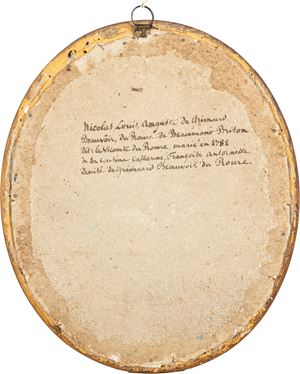 Nicolas Louis, Auguste de Grimoard
Beauvoir, du Roure de Beaumont Brison
dit le Vicomte du Roure, marié en 1782
à sa Cousine Catherine, Françoise Antoinette
de Grimoard Beauvoir du Roure.